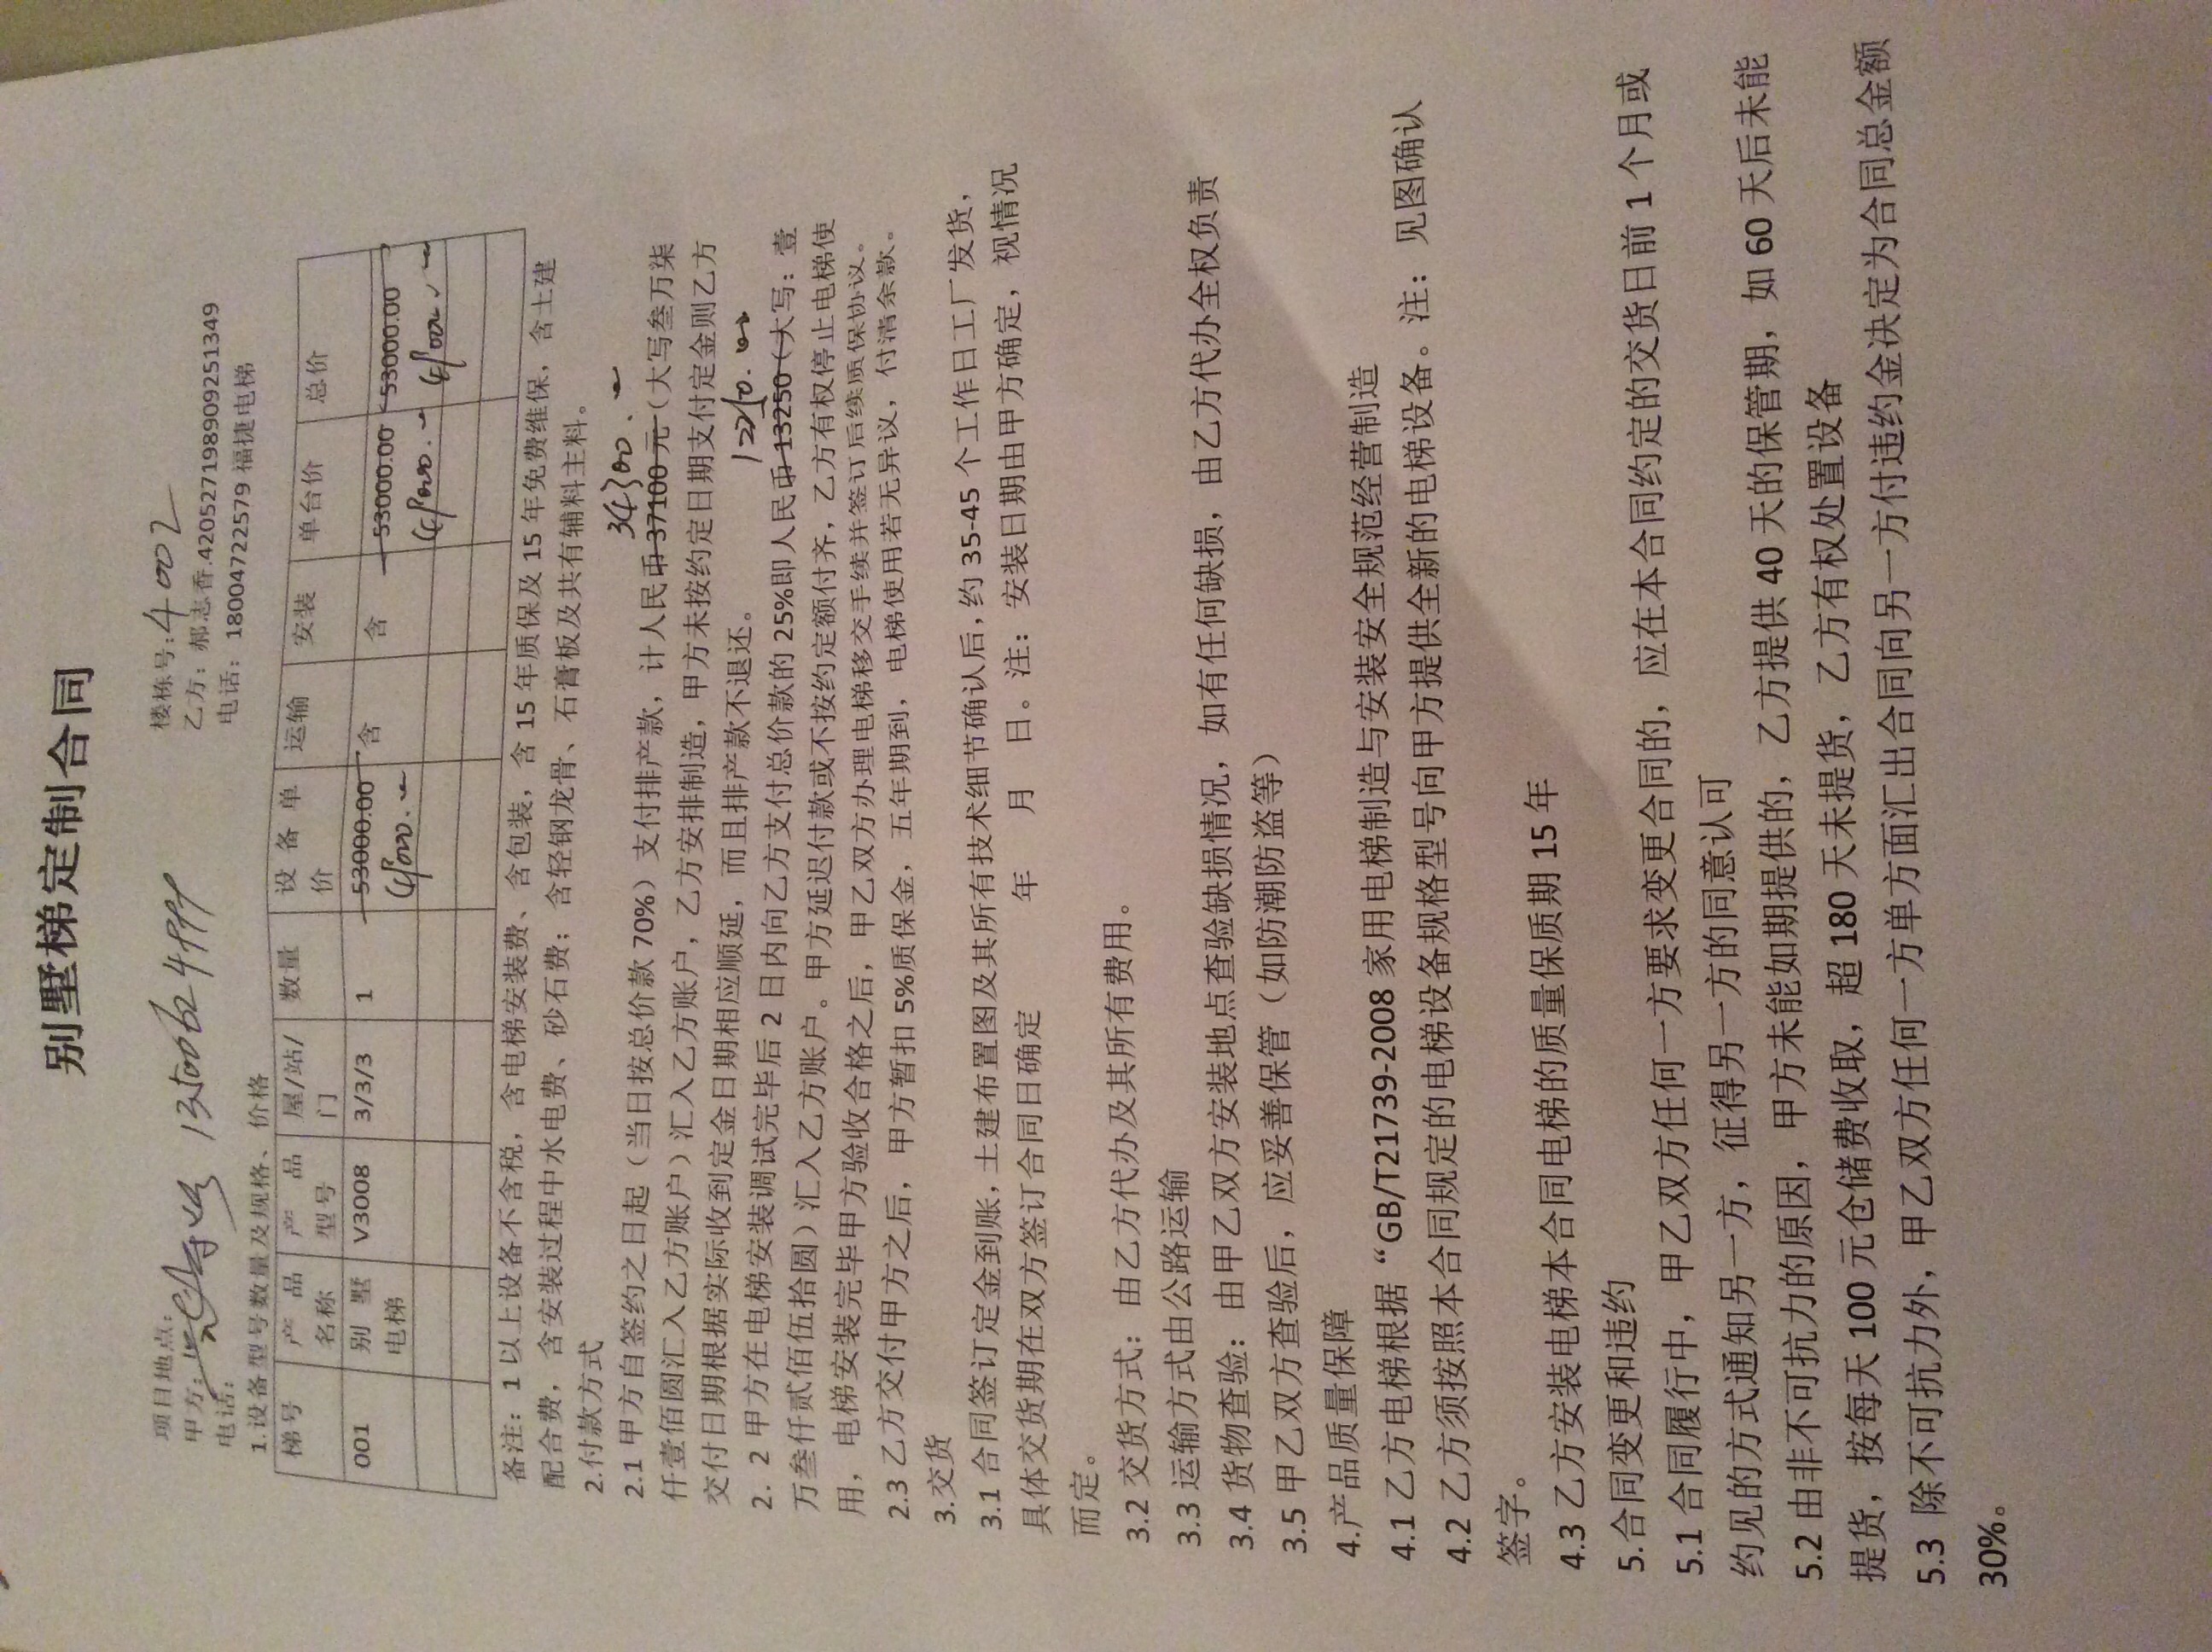 别墅梯定制合同
项目地点：
楼栋号：4002
甲方： 13500624999
乙方：郝志香.420527198909251349
电话：
电话：18004722579 福捷电梯
1.设备型号数量及规格、价格
梯号 产品名称 产品型号 屋/站/门 数量 设备单价 运输 安装 单台价 总价
001 别墅电梯 V3008 3/3/3 1 53000.00 含 含 53000.00 53000.00
备注：1 以上设备不含税，含电梯安装费、含包装，含 15 年质保及 15 年免费维保，含土建
配合费，含安装过程中水电费、砂石费；含轻钢龙骨、石膏板及共有辅料主料。
2.付款方式
34300.
2.1 甲方自签约之日起（当日按总价款 70%）支付排产款，计人民币 37100 元（大写叁万柒
仟壹佰圆汇入乙方账户）汇入乙方账户，乙方安排制造，甲方未按约定日期支付定金则乙方
交付日期根据实际收到定金日期相应顺延，而且排产款不退还。
12250.00
2．2 甲方在电梯安装调试完毕后 2 日内向乙方支付总价款的 25%即人民币 13250（大写：壹
万叁仟贰佰伍拾圆）汇入乙方账户。甲方延迟付款或不按约定额付齐，乙方有权停止电梯使
用，电梯安装完毕甲方验收合格之后，甲乙双方办理电梯移交手续并签订后续质保协议。
2.3 乙方交付甲方之后，甲方暂扣 5%质保金，五年期到，电梯使用若无异议，付清余款。
3.交货
3.1 合同签订定金到账，土建布置图及其所有技术细节确认后，约 35-45 个工作日工厂发货，
具体交货期在双方签订合同日确定 年 月 日。注：安装日期由甲方确定，视情况
而定。
3.2 交货方式：由乙方代办及其所有费用。
3.3 运输方式由公路运输
3.4 货物查验：由甲乙双方安装地点查验缺损情况，如有任何缺损，由乙方代办全权负责
3.5 甲乙双方查验后，应妥善保管（如防潮防盗等）
4.产品质量保障
4.1 乙方电梯根据“GB/T21739-2008 家用电梯制造与安装安全规范经营制造
4.2 乙方须按照本合同规定的电梯设备规格型号向甲方提供全新的电梯设备。注：见图确认
签字。
4.3 乙方安装电梯本合同电梯的质量保质期 15 年
5.合同变更和违约
5.1 合同履行中，甲乙双方任何一方要求变更合同的，应在本合同约定的交货日前 1 个月或
约见的方式通知另一方，征得另一方的同意认可
5.2 由非不可抗力的原因，甲方未能如期提供的，乙方提供 40 天的保管期，如 60 天后未能
提货，按每天 100 元仓储费收取，超 180 天未提货，乙方有权处置设备
5.3 除不可抗力外，甲乙双方任何一方单方面汇出合同向另一方付违约金决定为合同总金额
30%。